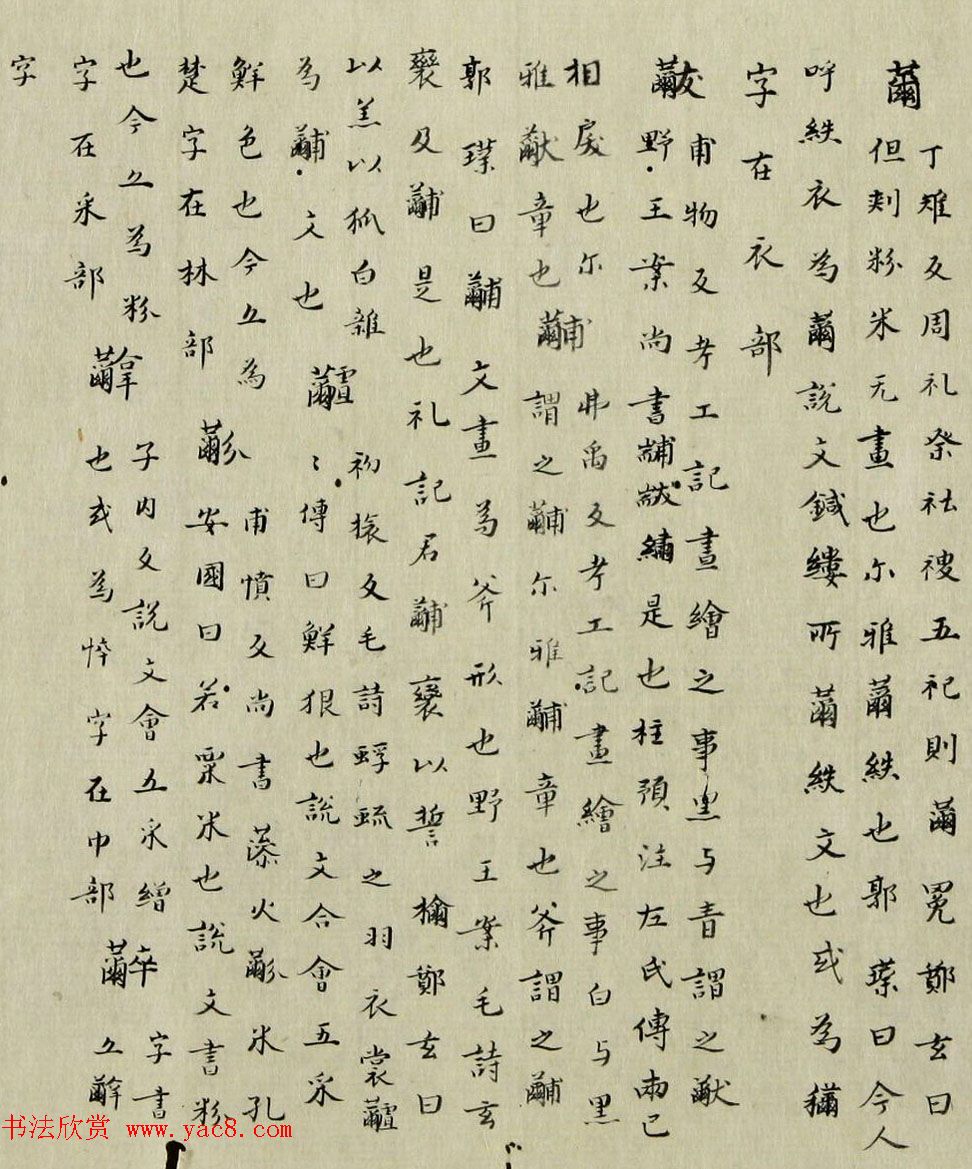 黹
丁雉反周礼祭社禝五祀則黹冕鄭玄曰
但刾粉米无畫也尒雅黹紩也郭璞曰今人
呼紩衣為黹說文鍼縷所黹紩文也或為襧
字在衣部
黻
甫物反考工記畫繪之事黑与青謂之黻
野王案尚書黼黻繡是也杜預注左氏傳兩己
相戾也尒
雅黻章也
黼
弗禹反考工記畫繪之事白与黑
謂之黼尒雅黼章也斧謂之黼
郭璞曰黼文畫為斧形也野王案毛詩玄
及黼是也礼記君黼裘以誓鄭玄曰
以羔以狐白雜
為黼文也
初旅反毛詩蜉蝣之羽衣裳
〻傳曰鮮皃也說文合會五采
鮮色也今亦為
楚字在林部
黺
甫憤反尚書藻火黺米孔
安國曰若粟米也說文書粉
也今亦為粉
字在米部
子內反說文會五采繒
也或為字在巾部
字書
亦
字
书法欣赏 www.yac8.com